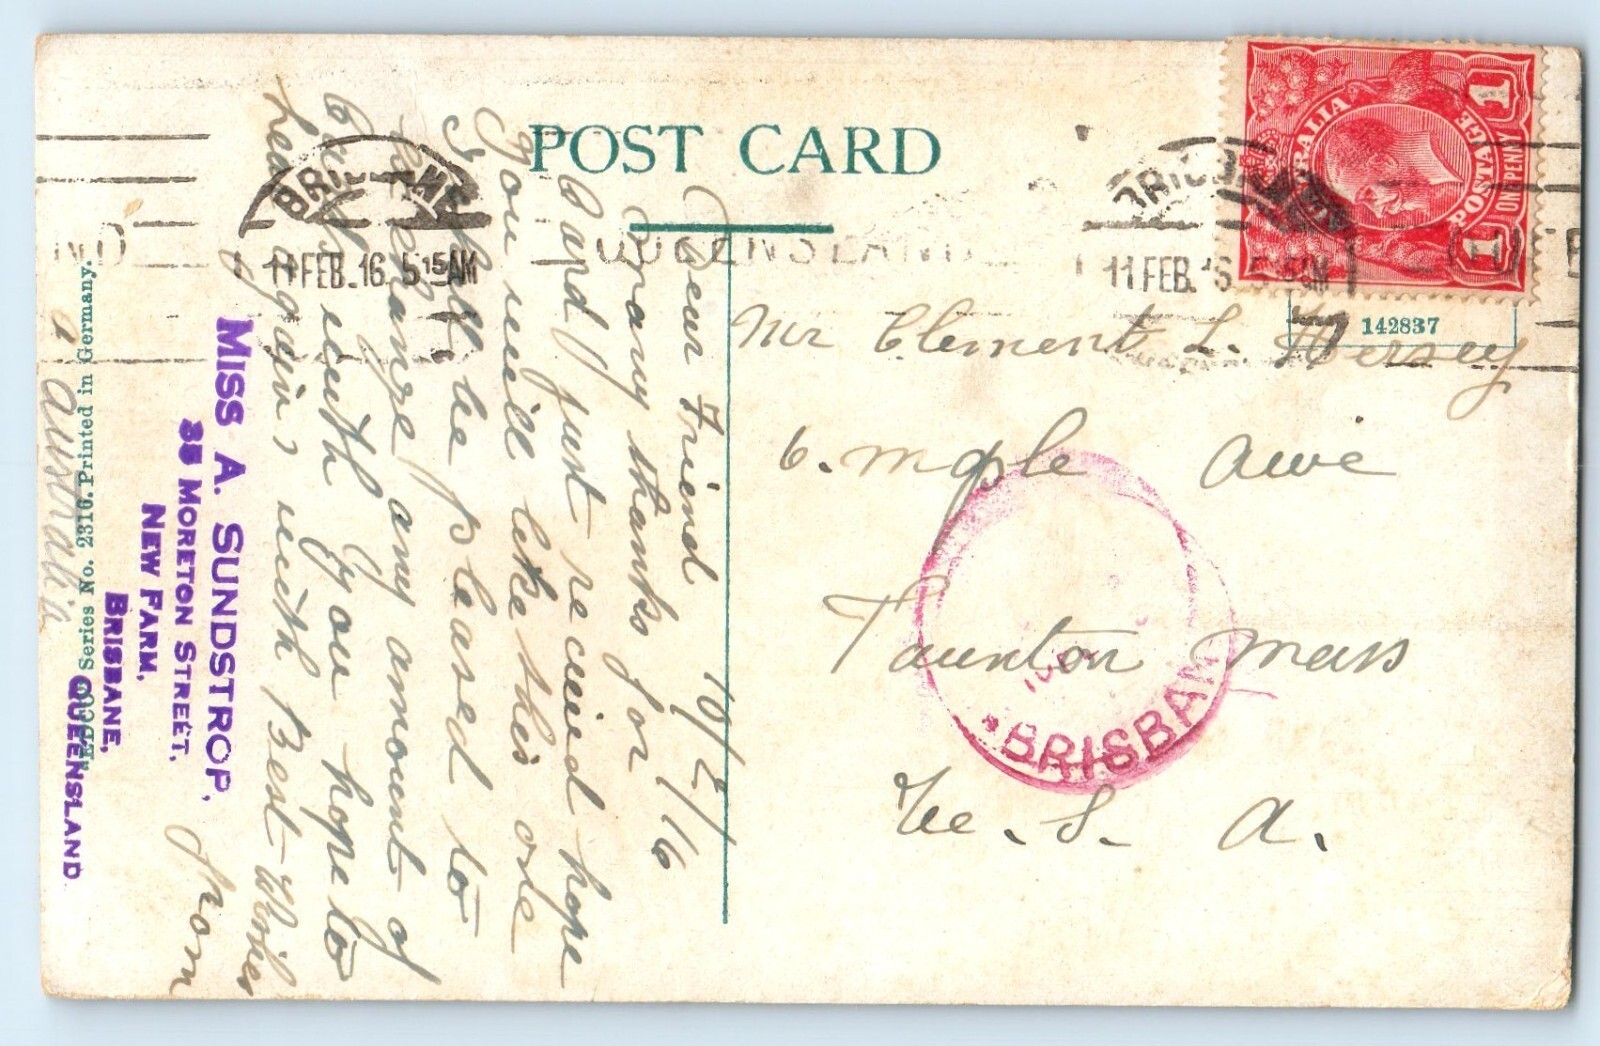 POST CARD
Dear Friend 10/2/16
Many thanks for
Card just received hope
you will like this one
I shall be pleased to
exchange any amount of
Cards with you hope to
hear again, with Best Wishes
from
MISS A. SUNDSTROP,
35 MORETON STREET,
NEW FARM,
BRISBANE,
QUEENSLAND
Australia
Series No. 2316. Printed in Germany.
BRISBANE
11 FEB. 16. 5 15 AM
QUEENSLAND
BRISBANE
11 FEB. 16 5 15 AM
AUSTRALIA
POSTAGE
1
1
ONE PENNY
142837
Mr Clement L. Hersey
6. Maple Ave
Taunton Mass
U. S. A.
BRISBANE